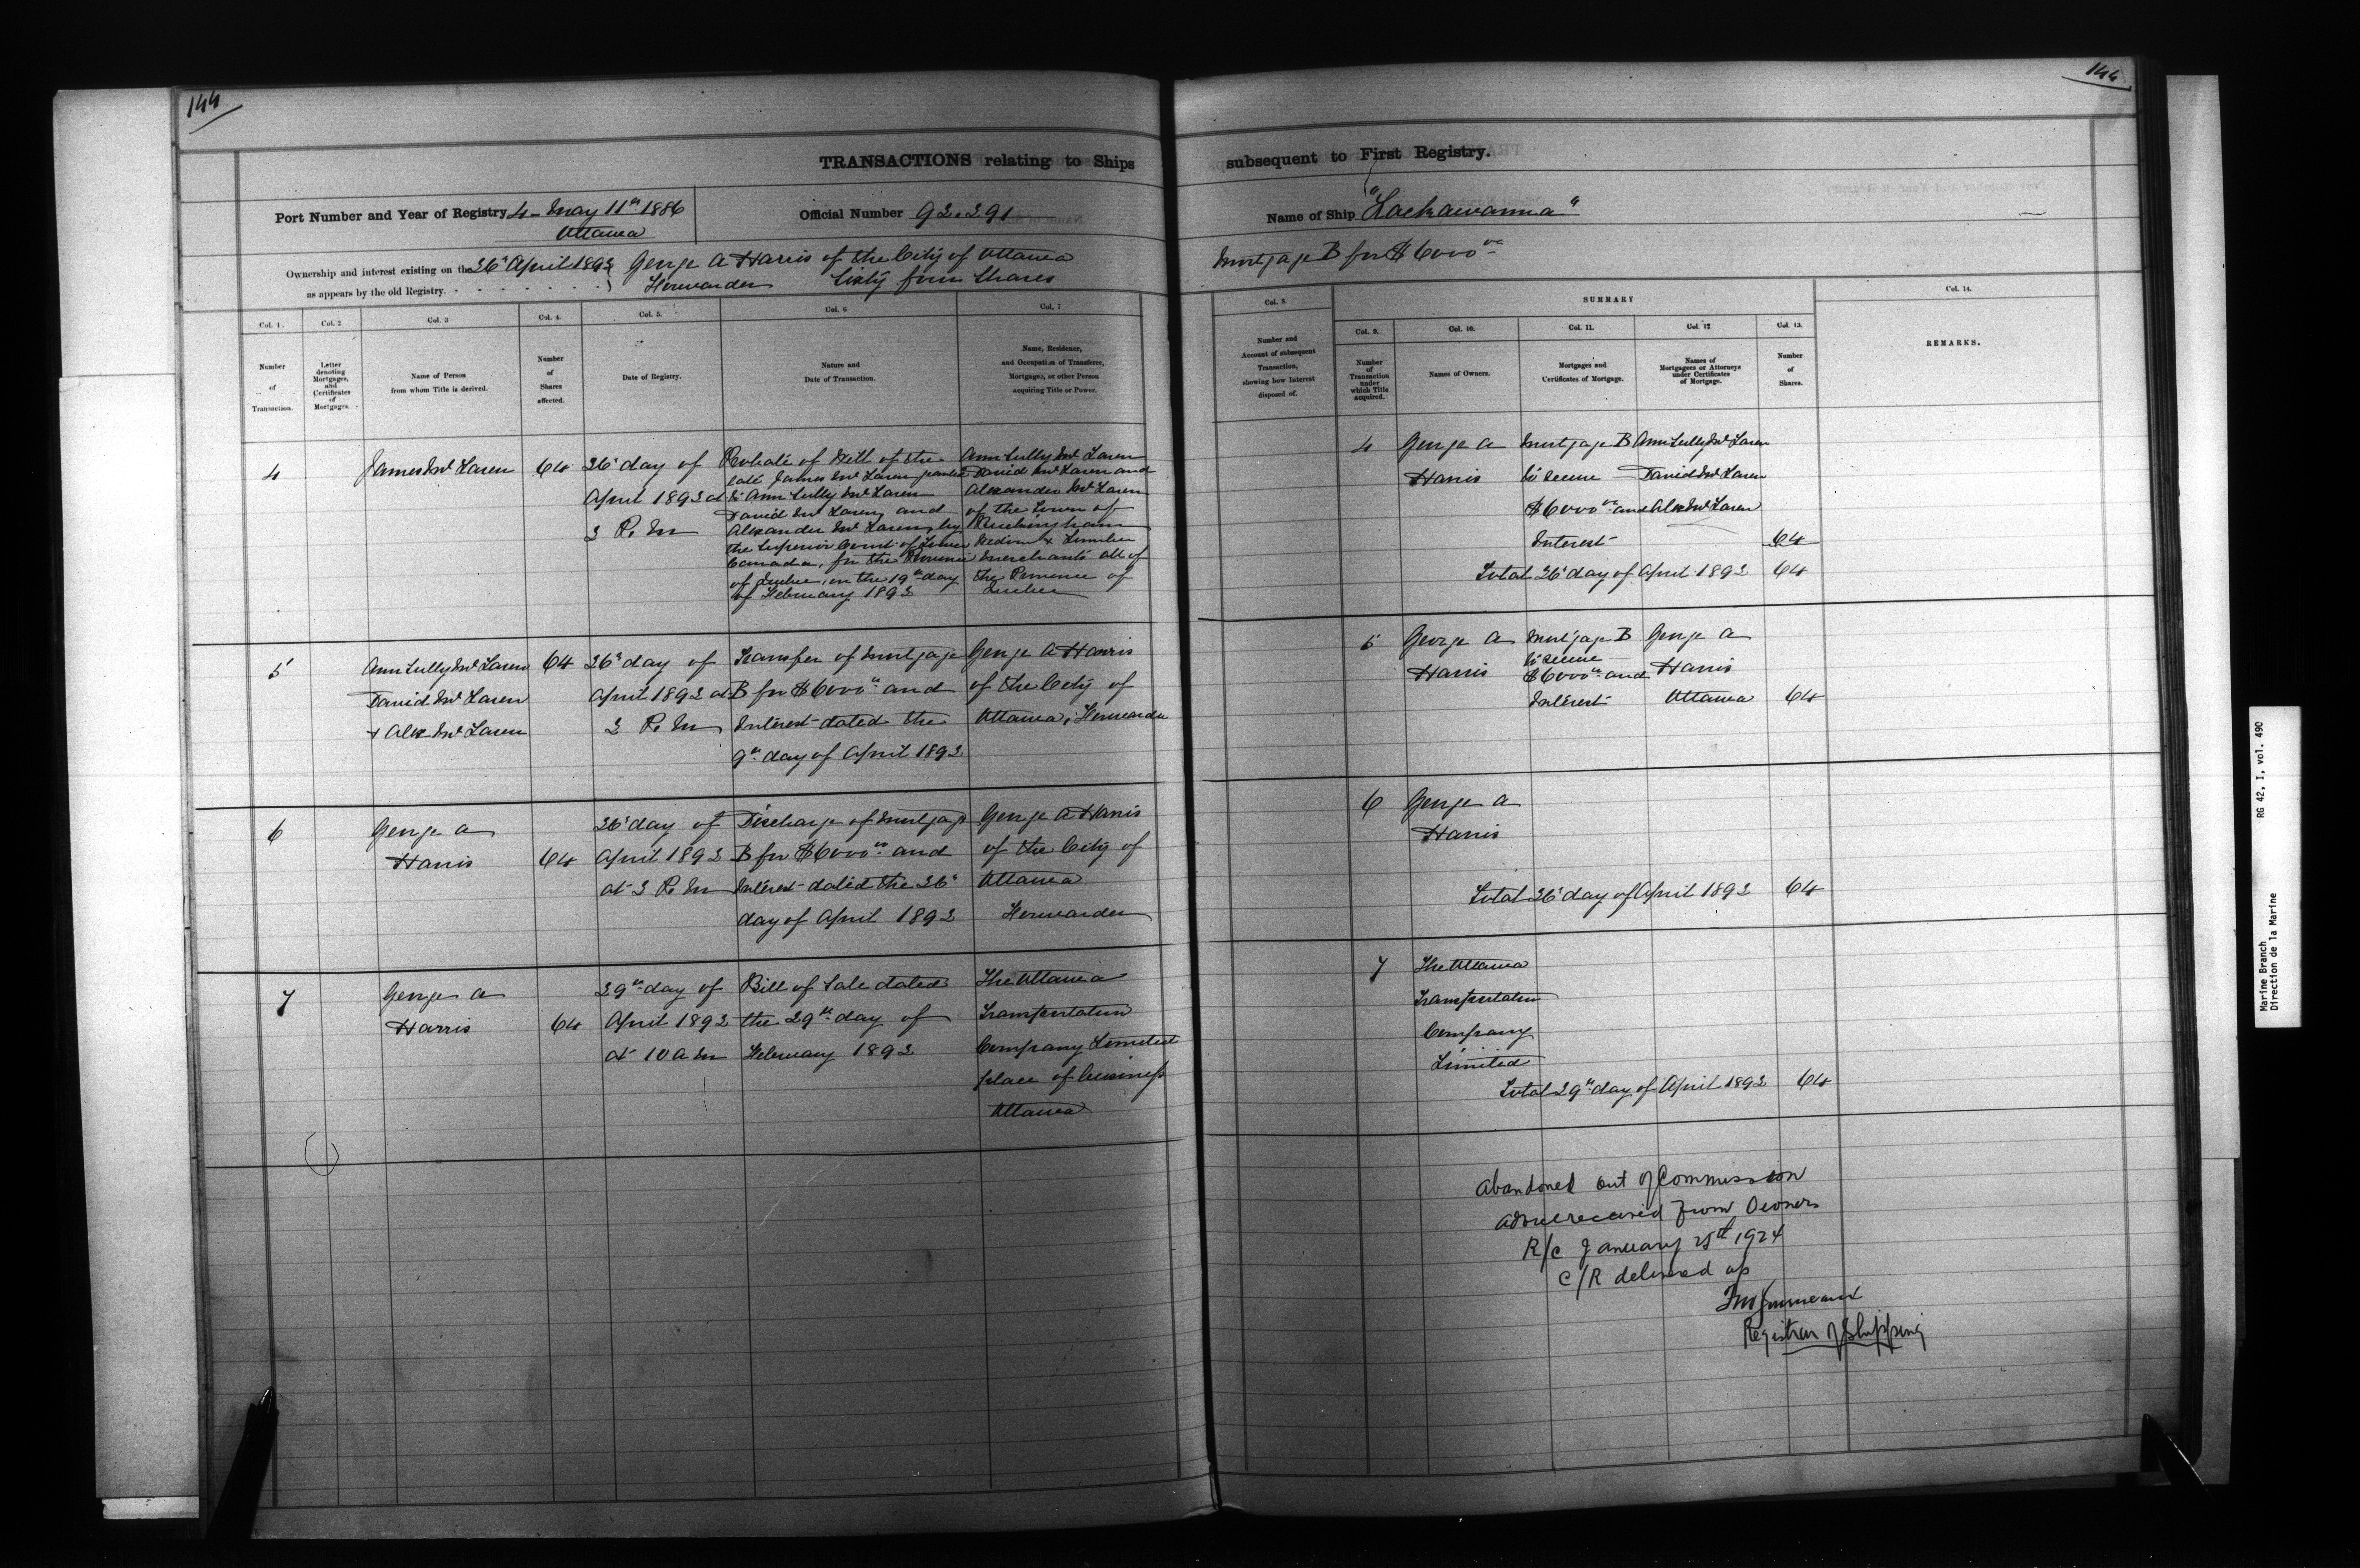 144
144
TRANSACTIONS relating to Ships
subsequent to First Registry.
Port Number and Year of Registry 4 - May 11th 1886
Ottawa
Official Number 92.291
Name of Ship "Lackawanna"
Ownership and interest existing on the 26th April 1893 George A Harris of the City of Ottawa
as appears by the old Registry. Forwarder Sixty four Shares
Mortgage B for $6000 00
Col. 1.
Col. 2
Col. 3
Col. 4.
Col. 5.
Col. 6
Col. 7
Number
of
Transaction.
Letter
denoting
Mortgages,
and
Certificates
of
Mortgages.
Name of Person
from whom Title is derived.
Number
of
Shares
affected.
Date of Registry.
Nature and
Date of Transaction.
Name, Residence,
and Occupation of Transferee,
Mortgagee, or other Person
acquiring Title or Power.
4
James McLaren
64
26th day of
April 1893 at
3 P. M
Probate of Will of the
late James McLaren granted
to Ann Sully McLaren
David McLaren and
Alexander McLaren, by
the Superior Court of Lower
Canada, for the Province
of Quebec, on the 19th day
of February 1893
Ann Sully McLaren
David McLaren and
Alexander McLaren
of the Town of
Buckingham
Widow & Lumber
Merchants all of
the Province of
Quebec
5
Ann Sully McLaren
David McLaren
+ Alex McLaren
64
26th day of
April 1893 at
3 P. M
Transfer of Mortgage
B for $6000 00 and
Interest dated the
9th day of April 1893
George A Harris
of the City of
Ottawa, Forwarder
6
George A
Harris
64
26th day of
April 1893
at 3 P. M
Discharge of Mortgage
B for $6000 00 and
Interest dated the 26th
day of April 1893
George A Harris
of the City of
Ottawa
Forwarder
7
George A
Harris
64
29th day of
April 1893
at 10 a m
Bill of Sale dated
the 29th day of
February 1893
The Ottawa
Transportation
Company Limited
place of business
Ottawa
Col. 8.
SUMMARY
Col. 14.
Col. 9.
Col. 10.
Col. 11.
Col. 12
Col. 13.
Number and
Account of subsequent
Transaction,
showing how Interest
disposed of.
Number
of
Transaction
under
which Title
acquired.
Names of Owners.
Mortgages and
Certificates of Mortgage.
Names of
Mortgagees or Attorneys
under Certificates
of Mortgage.
Number
of
Shares.
REMARKS.
4
George A
Harris
Mortgage B
to secure
$6000 00 and
Interest
Ann Sully McLaren
David McLaren
Alex McLaren
64
Total 26th day of April 1893 64
5
George A
Harris
Mortgage B
to secure
$6000 00 and
Interest
George A
Harris
Ottawa
64
6
George A
Harris
Total 26th day of April 1893 64
7
The Ottawa
Transportation
Company
Limited
Total 29th day of April 1893 64
Abandoned out of Commission
advice received from Owners
R/C January 25th 1924
C/R delivered up
Registrar of Shipping
RG 42, I, vol. 490
Marine Branch
Direction de la Marine